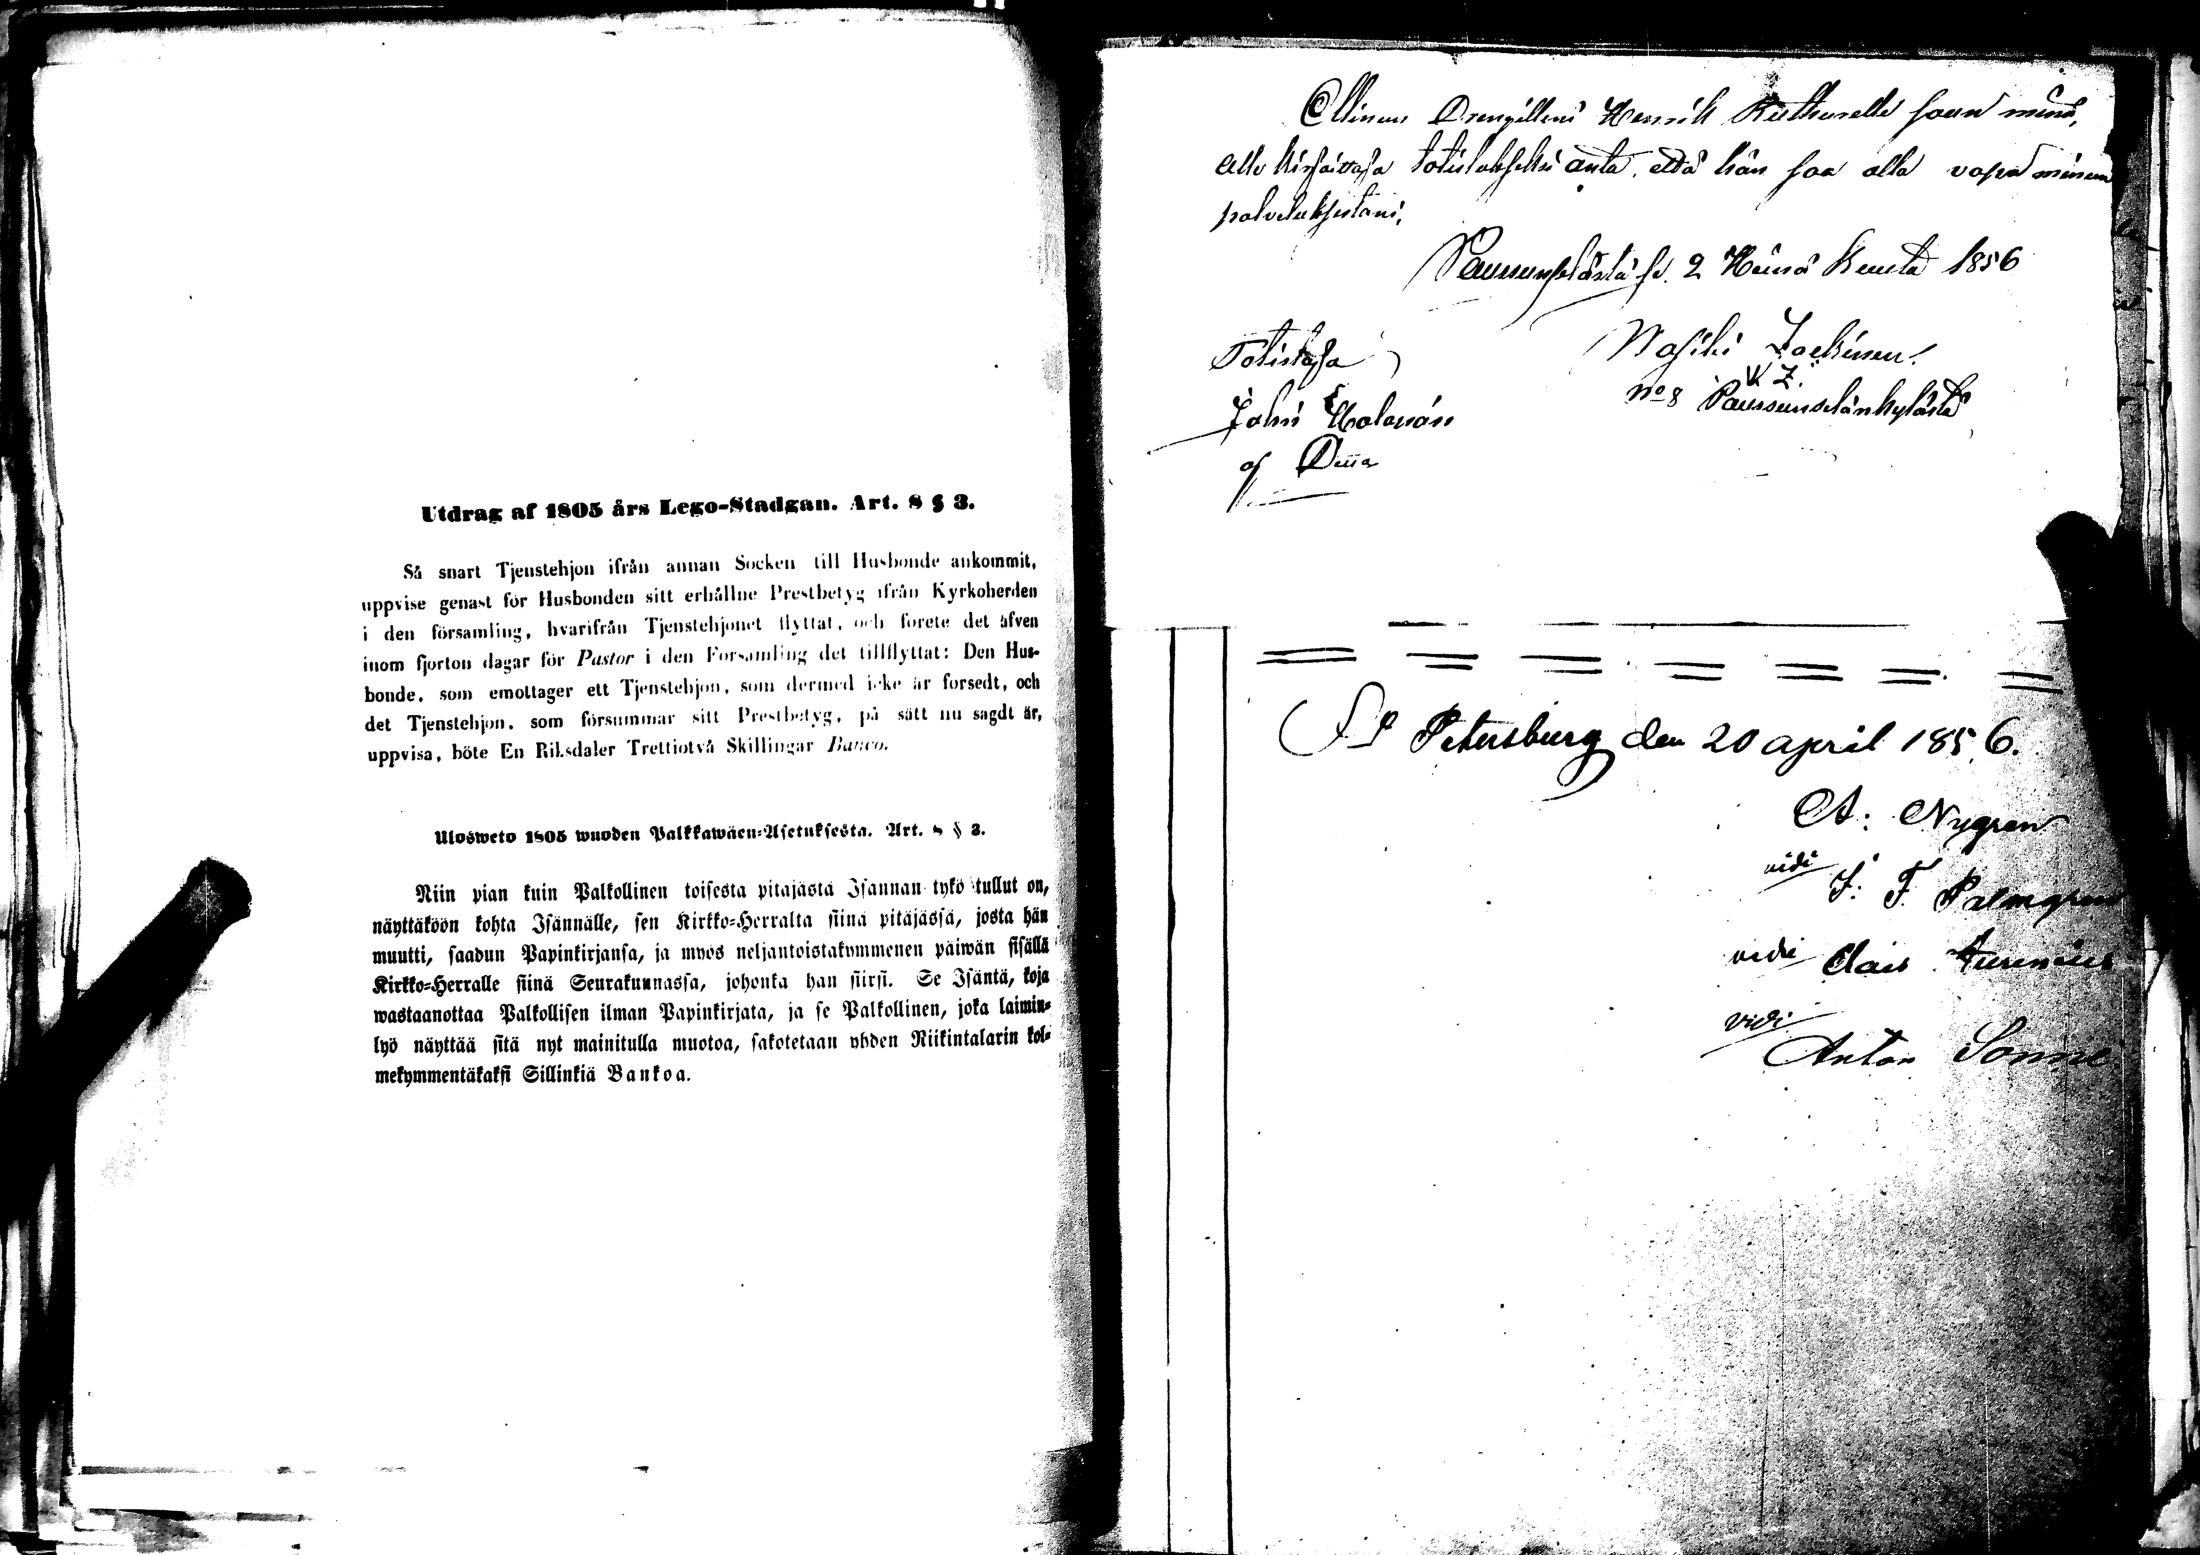 Utdrag af 1805 års Lego-Stadgan. Art. 8 § 3.
Så snart Tjenstehjon ifrån annan Socken till Husbonde ankommit,
uppvise genast för Husbonden sitt erhållne Prestbetyg ifrån Kyrkoherden
i den församling, hvarifrån Tjenstehjonet flyttat, och förete det äfven
inom fjorton dagar för Pastor i den Församling det tillflyttat: Den Hus-
bonde, som emottager ett Tjenstehjon, som dermed icke är försedt, och
det Tjenstehjon, som försummar sitt Prestbetyg, på sätt nu sagdt är,
uppvisa, böte En Riksdaler Trettiotvå Skillingar Banco.
Ulosweto 1805 wuoden Palkkawäen-Asetuksesta. Art. 8 § 3.
Niin pian kuin Palkollinen toisesta pitäjästä Isännän tykö tullut on,
näyttäköön kohta Isännälle, sen Kirkko-Herralta siinä pitäjässä, josta hän
muutti, saadun Papinkirjansa, ja myös neljantoistakymmenen päiwän sisällä
Kirkko-Herralle siinä Seurakunnassa, johonka hän siirsi. Se Isäntä, koja
wastaanottaa Palkollisen ilman Papinkirjata, ja se Palkollinen, joka laimin-
lyö näyttää sitä nyt mainitulla muotoa, sakotetaan yhden Riikintalarin kol-
mekymmentäkaksi Sillinkiä Bankoa.
Minun Drengilleni Henrik saan minä,
alle kirjaittaja totistukseksi anta, että hän saa olla vapa minun
palveluksestani,
se. 2 Heinä Kuuta 1856
Totistaja
Wasiki
Johi
No 8
af
St Petersburg den 20 april 1856.
A: Nygren
vidi
J: F. Palmgren
vidi Clais
vidi
Anton Sonne